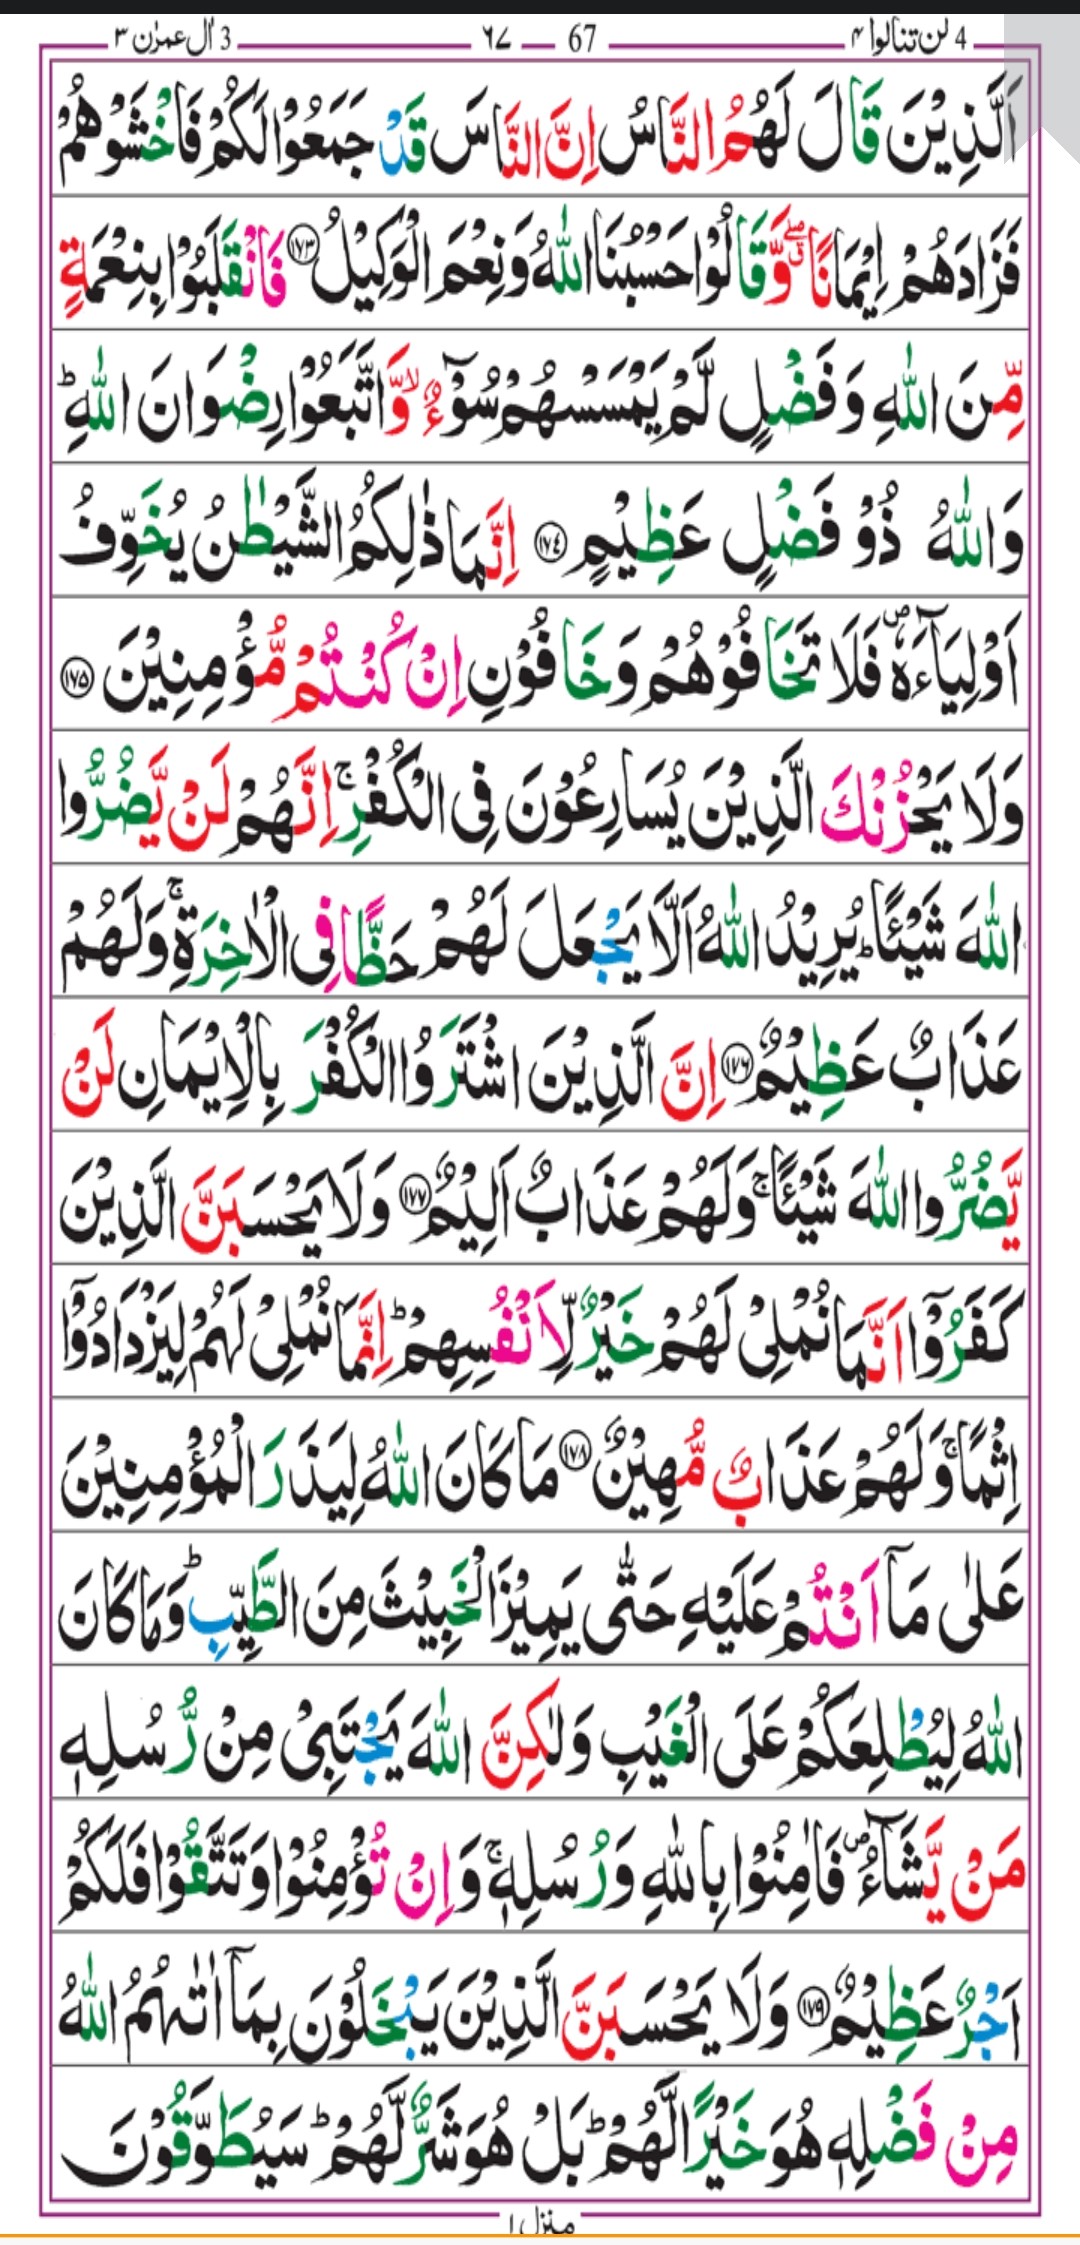 3 اٰل عمرٰن ٣ ٦٧ 67 4 لن تنالوا ٤
اَلَّذِيْنَ قَالَ لَهُمُ النَّاسُ اِنَّ النَّاسَ قَدْ جَمَعُوْا لَكُمْ فَاخْشَوْهُمْ
فَزَادَهُمْ اِيْمَانًا ۖۗ وَّقَالُوْا حَسْبُنَا اللّٰهُ وَنِعْمَ الْوَكِيْلُ ﴿۱۷۳﴾ فَانْقَلَبُوْا بِنِعْمَةٍ
مِّنَ اللّٰهِ وَفَضْلٍ لَّمْ يَمْسَسْهُمْ سُوْٓءٌ ۙ وَّاتَّبَعُوْا رِضْوَانَ اللّٰهِ ؕ
وَاللّٰهُ ذُوْ فَضْلٍ عَظِيْمٍ ﴿۱۷۴﴾ اِنَّمَا ذٰلِكُمُ الشَّيْطٰنُ يُخَوِّفُ
اَوْلِيَآءَهٗ ۪ فَلَا تَخَافُوْهُمْ وَخَافُوْنِ اِنْ كُنْتُمْ مُّؤْمِنِيْنَ ﴿۱۷۵﴾
وَلَا يَحْزُنْكَ الَّذِيْنَ يُسَارِعُوْنَ فِى الْكُفْرِ ۚ اِنَّهُمْ لَنْ يَّضُرُّوا
اللّٰهَ شَيْـًٔا ؕ يُرِيْدُ اللّٰهُ اَلَّا يَجْعَلَ لَهُمْ حَظًّا فِى الْاٰخِرَةِ ۚ وَلَهُمْ
عَذَابٌ عَظِيْمٌ ﴿۱۷۶﴾ اِنَّ الَّذِيْنَ اشْتَرَوُا الْكُفْرَ بِالْاِيْمَانِ لَنْ
يَّضُرُّوا اللّٰهَ شَيْـًٔا ۚ وَلَهُمْ عَذَابٌ اَلِيْمٌ ﴿۱۷۷﴾ وَلَا يَحْسَبَنَّ الَّذِيْنَ
كَفَرُوْٓا اَنَّمَا نُمْلِىْ لَهُمْ خَيْرٌ لِّاَنْفُسِهِمْ ؕ اِنَّمَا نُمْلِىْ لَهُمْ لِيَزْدَادُوْٓا
اِثْمًا ۚ وَلَهُمْ عَذَابٌ مُّهِيْنٌ ﴿۱۷۸﴾ مَا كَانَ اللّٰهُ لِيَذَرَ الْمُؤْمِنِيْنَ
عَلٰى مَاۤ اَنْتُمْ عَلَيْهِ حَتّٰى يَمِيْزَ الْخَبِيْثَ مِنَ الطَّيِّبِ ؕ وَمَا كَانَ
اللّٰهُ لِيُطْلِعَكُمْ عَلَى الْغَيْبِ وَلٰكِنَّ اللّٰهَ يَجْتَبِىْ مِنْ رُّسُلِهٖ
مَنْ يَّشَآءُ ۪ فَاٰمِنُوْا بِاللّٰهِ وَرُسُلِهٖ ۚ وَاِنْ تُؤْمِنُوْا وَتَتَّقُوْا فَلَكُمْ
اَجْرٌ عَظِيْمٌ ﴿۱۷۹﴾ وَلَا يَحْسَبَنَّ الَّذِيْنَ يَبْخَلُوْنَ بِمَاۤ اٰتٰىهُمُ اللّٰهُ
مِنْ فَضْلِهٖ هُوَ خَيْرًا لَّهُمْ ؕ بَلْ هُوَ شَرٌّ لَّهُمْ ؕ سَيُطَوَّقُوْنَ
منزل ١